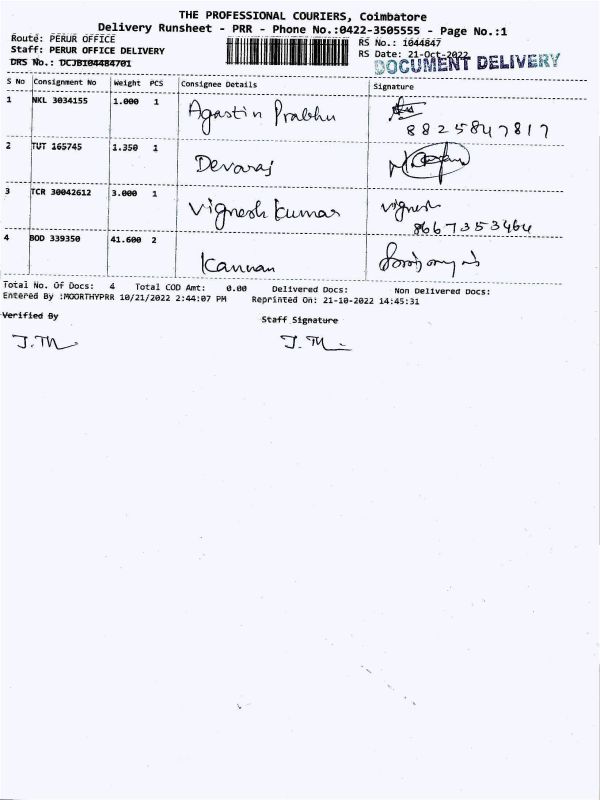 THE PROFESSIONAL COURIERS, Coimbatore
Delivery Runsheet - PRR - Phone No.:0422-3505555 - Page No.:1
Route: PERUR OFFICE RS No.: 1044847
Staff: PERUR OFFICE DELIVERY RS Date: 21-Oct-2022
DRS No.: DCJB104484701 DOCUMENT DELIVERY
S No Consignment No Weight PCS Consignee Details Signature
1 NKL 3034155 1.000 1 Agastin Prabhu
8825847817
2 TUT 165745 1.350 1 Devaraj
3 TCR 30042612 3.000 1 Vignesh kumar Vignesh
8667353464
4 BOD 339350 41.600 2 Kannan
Total No. Of Docs: 4 Total COD Amt: 0.00 Delivered Docs: Non Delivered Docs:
Entered By :MOORTHYPRR 10/21/2022 2:44:07 PM Reprinted On: 21-10-2022 14:45:31
Verified By Staff Signature